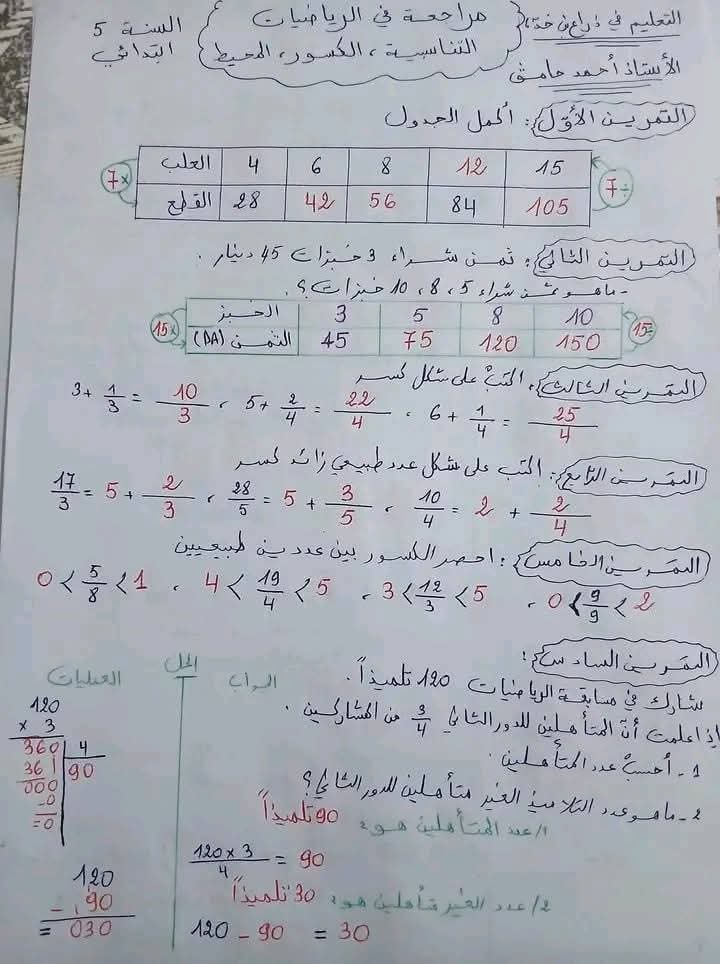 التعليم في ذراع بن خدة،
مراجعة في الرياضيات
التناسبية، الكسور، المحيط
السنة 5
ابتدائي
الأستاذ أحمد حامق
التمرين الأول: أكمل الجدول
العلب 4 6 8 12 15
القطع 28 42 56 84 105
7× 7÷
التمرين الثاني: ثمن شراء 3 خبزات 45 دينار.
- ما هو ثمن شراء 5، 8، 10 خبزات؟
الخبز 3 5 8 10
الثمن (DA) 45 75 120 150
15× 15÷
التمرين الثالث: اكتب على شكل كسر
3+ 1/3 = 10/3 ، 5+ 2/4 = 22/4 ، 6 + 1/4 = 25/4
التمرين الرابع: اكتب على شكل عدد طبيعي زائد كسر
17/3 = 5 + 2/3 ، 28/5 = 5 + 3/5 ، 10/4 = 2 + 2/4
التمرين الخامس: احصر الكسور بين عددين طبيعيين
0 < 5/8 < 1 ، 4 < 19/4 < 5 ، 3 < 12/3 < 5 ، 0 < 9/9 < 2
التمرين السادس:
شارك في مسابقة الرياضيات 120 تلميذاً.
إذا علمت أنّ المتأهلين للدور الثاني 3/4 من المشاركين.
1- أحسب عدد المتأهلين.
2- ما هو عدد التلاميذ الغير متأهلين للدور الثاني؟
الحل
الجواب
1/ عدد المتأهلين هو: 90 تلميذاً
120 × 3 / 4 = 90
2/ عدد الغير متأهلين هو: 30 تلميذاً
120 - 90 = 30
العمليات
120
× 3
360 4
36 90
000
-0
=0
120
- 90
= 030